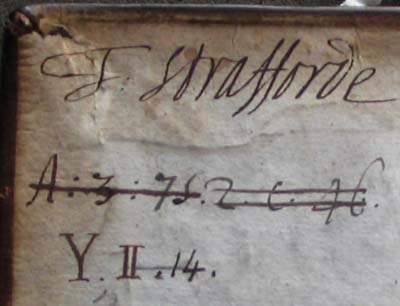 T: Strafforde
A: 3: 75. Z. C. 46.
Y. II. 14.